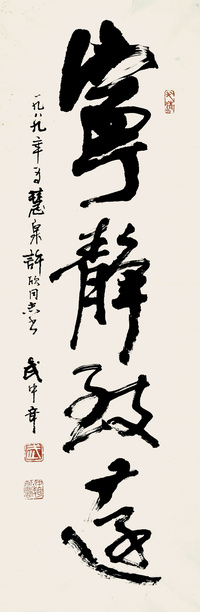 寧靜致遠
一九八九年春慧泉許欣同志正
武中奇